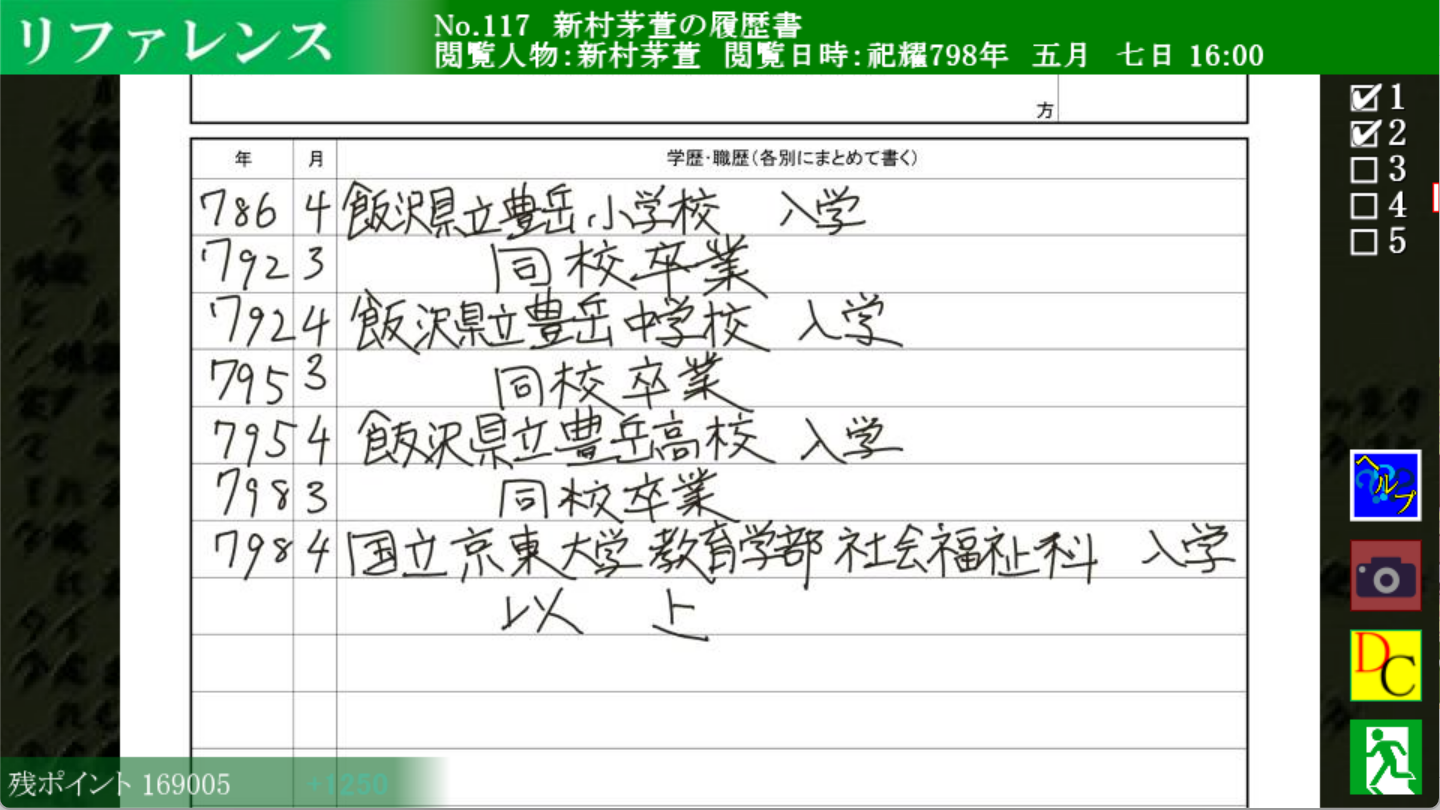 リファレンス
No.117 新村茅萱の履歴書
閲覧人物:新村茅萱 閲覧日時:祀耀798年 五月 七日 16:00
方
年 月 学歴・職歴(各別にまとめて書く)
786 4 飯沢県立豊岳小学校 入学
792 3 同校卒業
792 4 飯沢県立豊岳中学校 入学
795 3 同校卒業
795 4 飯沢県立豊岳高校 入学
798 3 同校卒業
798 4 国立京東大学教育学部社会福祉科 入学
以上
1
2
3
4
5
ヘルプ
DC
残ポイント 169005 +1250